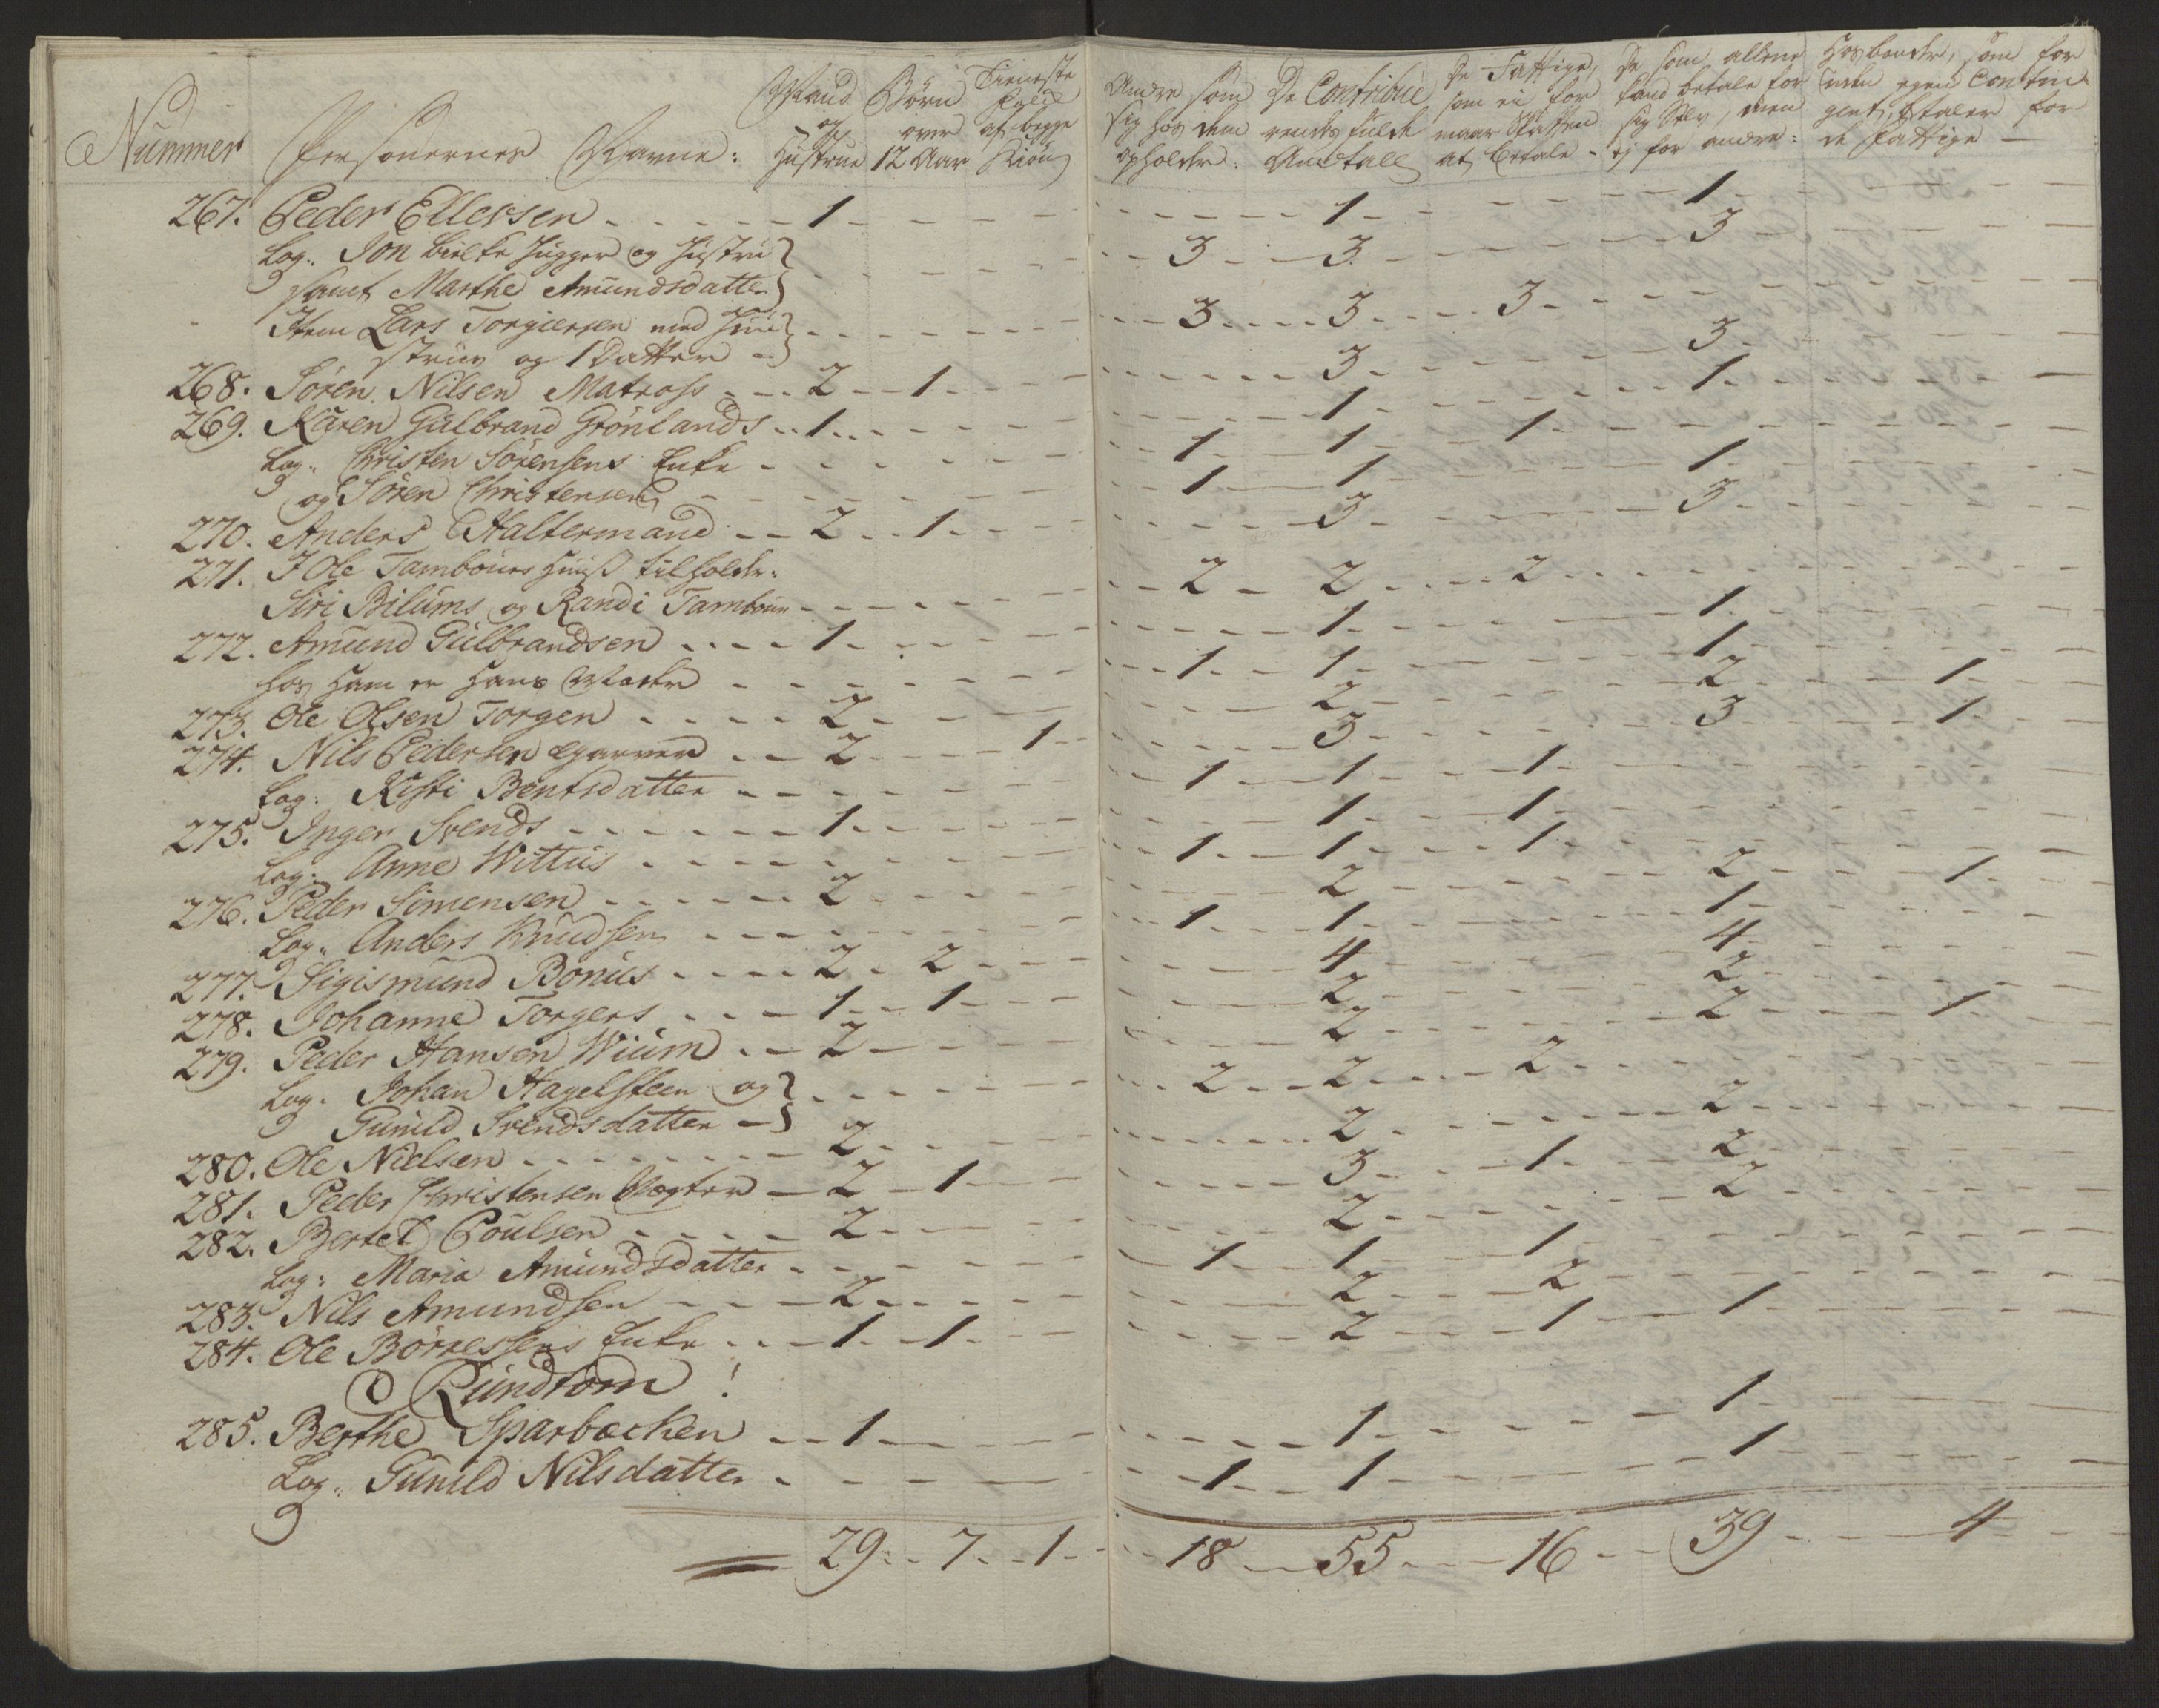 Nummer Personernes Navne: Mand og Hustrue Børn over 12 Aar Tieneste Folk af begge Kiøn Andre som sig hos dem opholder. De Contribuerendes fulde Antall De Fattige, som ei for maar Skatten at betale - De som allene kand betale for sig Selv, men ej for andre: Hosbonder, som for uden egen Contingent, betaler for de Fattige -
267. Peder Ellessen 1 1 1
Log: Jon og Hustru 3 3 3
samt Marthe Amundsdatter
Item Lars Torgiersen med Hu 3 3 3
strue og 1 Datter
268. Søren Nilsen Matross 2 1 3 3
269. Karen Gulbrand Grönlands 1 1 1
Log: Christen Sörensens Enke 1 1 1
og Sören Christensen 1 1 1
270. Anders Haltermand 2 1 3 3
271. I Ole Tambours Huus tilholder.
Siri Bilums og Randi Tambour 2 2 2
272. Amund Gulbrandsen 1 1 1
hos Ham er Hans Moder 1 1 1
273. Ole Olsen Torgen 2 2 2 1
274. Nils Pedersen Garver 2 1 3 3 1
Log: Kisti Bentsdatter 1 1 1
275. Inger Svends 1 1 1
Log: Anne Wittus 1 1 1
276. Peder Simensen 2 2 2 1
Log: Anders Knudsen 1 1 1
277. Sigismund Bonus 2 2 4 4
278. Johanne Torgers 1 1 2 2
279. Peder Hansen Wium 2 2 2 1
Log. Johan Hagelsteen og 2 2 2
Gunild Svendsdatter
280. Ole Nielsen 2 2 2
281. Peder Christensen Vægter 2 1 3 1 2
282. Bertel Poulsen 2 2 2
Log: Maria Amundsdatter 1 1 1
283. Nils Amundsen 2 2 2
284. Ole Börresens Enke 1 1 2 1 1
Rundtom!
285. Berthe Sparbacken 1 1 1
Log: Gunild Nilsdatter 1 1 1
29 7 1 18 55 16 39 4